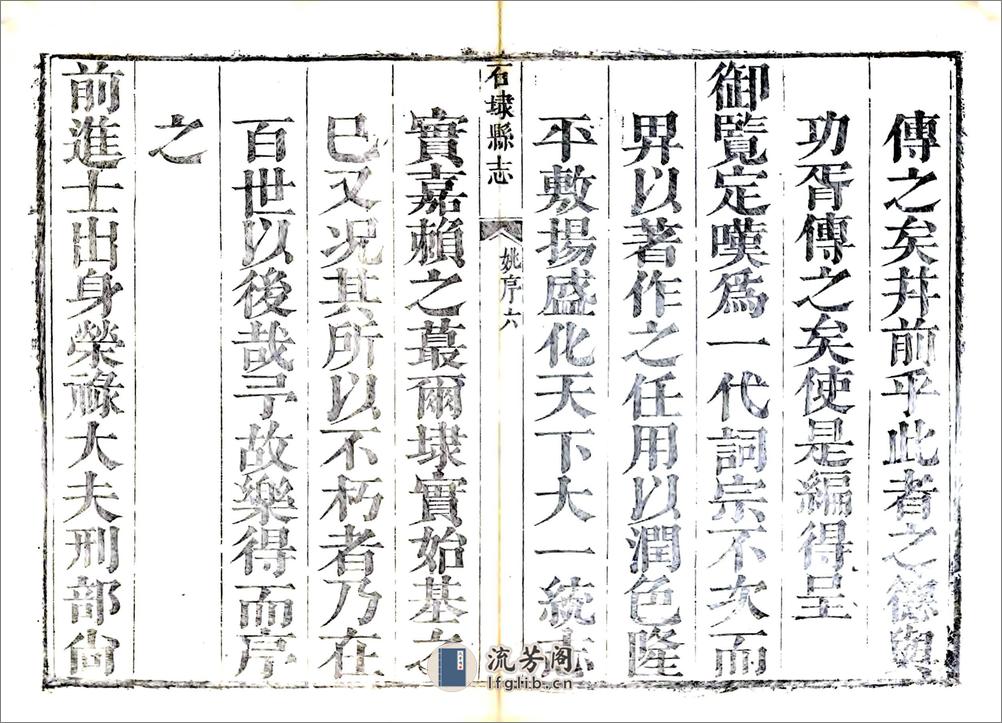 傳之矣幷前乎此者之德與
功胥傳之矣使是編得呈
御覽定嘆爲一代詞宗不次而
畀以著作之任用以潤色隆
平敷揚盛化天下大一統志
石埭縣志
姚序六
實嘉賴之蕞爾埭實始基之
已又况其所以不朽者乃在
百世以後哉予故樂得而序
之
前進士出身榮祿大夫刑部尙
流芳閣
lfglib.cn